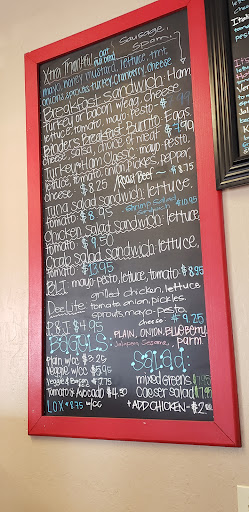 Xtra Thankful our own oven
Sausage,
Spam!
mayo, honey mustard, lettuce, tmt,
onions, sprouts, turkey, cranberry, cheese
Breakfast sandwich: Ham
turkey or bacon w/egg, cheese
lettuce, tomato, mayo-pesto $
Binders Breakfast Burrito Eggs
cheese, salsa, choice of meat $
Turkey+Ham Classic: mayo-pesto,
lettuce, tomato, onion, pickles, pepper,
cheese $8.25 /Roast Beef ~ $8.75
Tuna salad sandwich: lettuce,
tomato $8.95 -Shrimp Salad $10.95
Chicken salad sandwich: lettuce
tomato $9.50
Crab salad sandwich: lettuce,
tomato $13.95
BLT: mayo-pesto, lettuce, tomato $8.95
Dee Lite: grilled chicken, lettuce
tomato, onion, pickles.
sprouts, mayo-pesto,
cheese $9.25
PB&J $4.95
BAGELS: PLAIN, ONION, BLUEBERRY
Jalapeno, Sesame, parm
Plain w/cc $3.25
veggie w/cc $5.95
Veggie & Butter $2.75
Tomato & Avocado $4.50
LOX $8.75 w/cc
Salad:
mixed Greens
Caesar salad
+ADD CHICKEN- $2.00